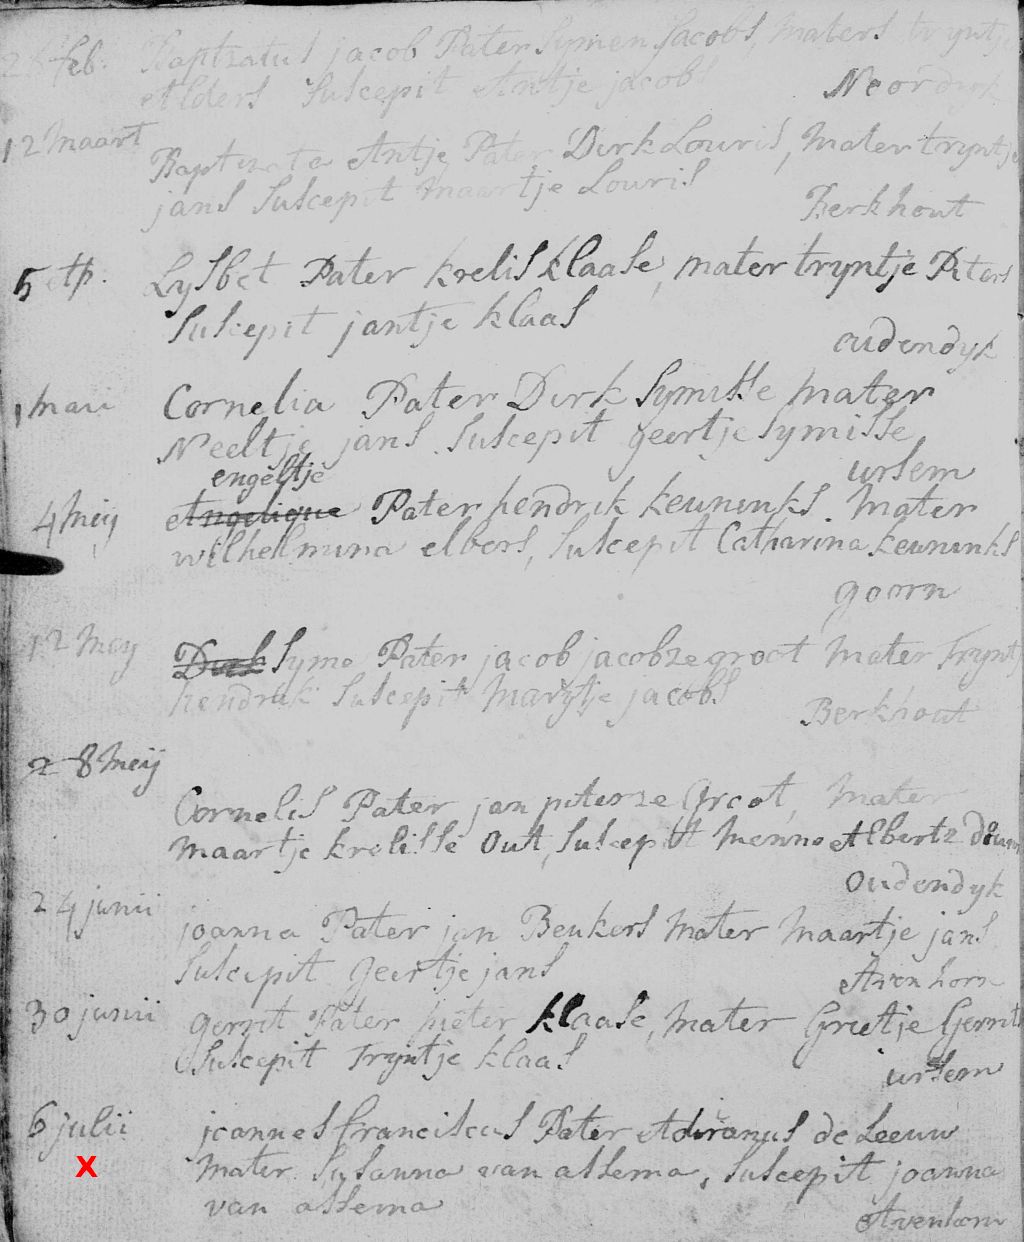 26 feb. Baptzatus jacob Pater Symen Jacobs, maters tryntje
Alders Suscepit Antje jacobs
Noordyk
12 maart
Baptizata Antje Pater Dirk Louris, Mater tryntje
jans Suscepit maartje Louris
Berkhout
5 Lysbet Pater krelis klaase, mater tryntje Piters
Suscepit jantje klaas
oudendyk
1 maii Cornelia Pater Dirk Symisse mater
Neeltje jans Suscepit geertje Symisse
ursem
engeltje
4 Meij Angelique Pater hendrik keuninks. Mater
wilhellmina elbers, Suscepit Catharina keuninks
goorn
12 Mey Dirk Syme Pater jacob jacobze groot Mater Trynt
hendrik Suscepit Martje jacobs
Berkhout
28 Meij
Cornelis Pater jan piterze Groot, Mater
Maartje krelisse Out, Suscepit Menno Albertz
Oudendyk
24 junii
joanna Pater jan Beukers Mater Maartje jans
Suscepit geertje jans
Avenhorn
30 junii gerrit Pater pieter klaase, Mater Grietje Gerrits
Suscepit Tryntje klaas
ursem
6 julii joannes franciscus Pater Adiranus de Leeuw
x Mater Susanna van assema, Suscepit joanna
van assema
Avenhorn